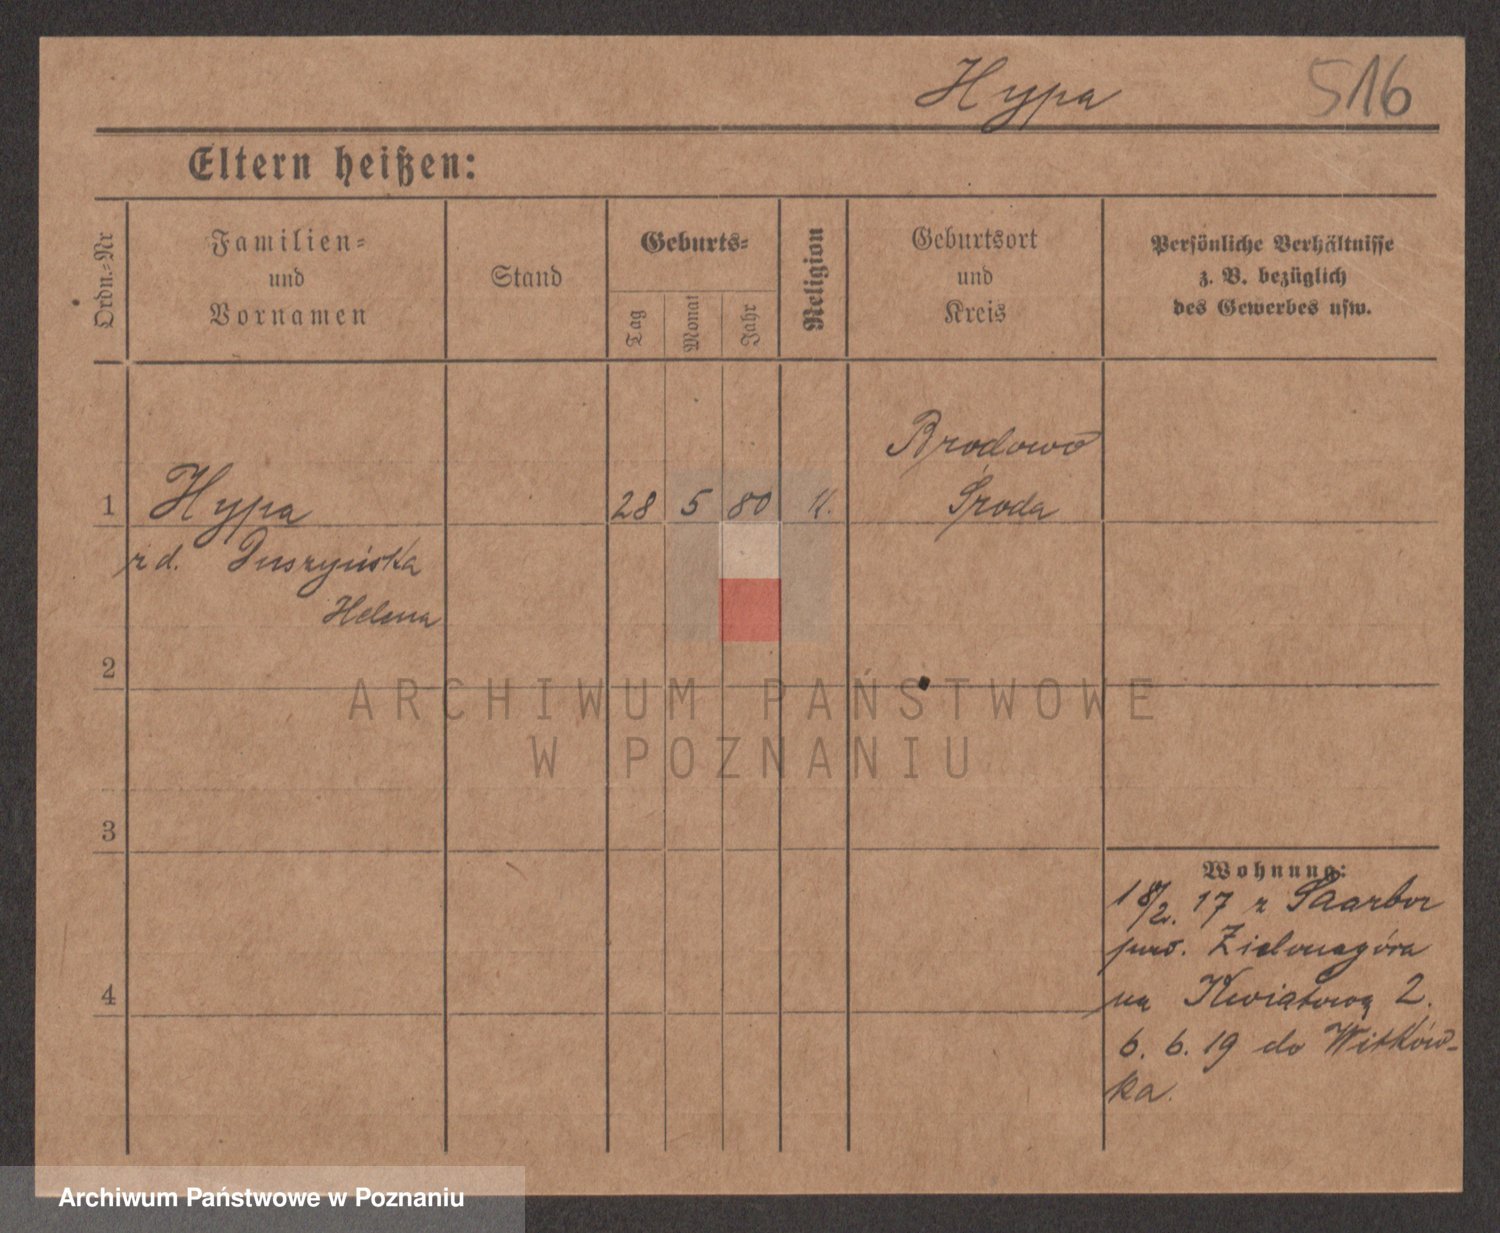 Hypa 516
Eltern heißen:
Ordn.-Nr
Familien-
und
Vornamen
Stand
Geburts-
Tag
Monat
Jahr
Religion
Geburtsort
und
Kreis
Persönliche Verhältnisse
z. B. bezüglich
des Gewerbes usw.
Brodowo
1 Hypa 28 5 80 K. Środa
zd. Duszyńska
Helena
2
ARCHIWUM PAŃSTWOWE
W POZNANIU
3
Wohnung:
18/2. 17 z Saarbor
pow. Zielonagóra
4
na Kwiatową 2.
6. 6. 19 do Witków-
ka.
Archiwum Państwowe w Poznaniu